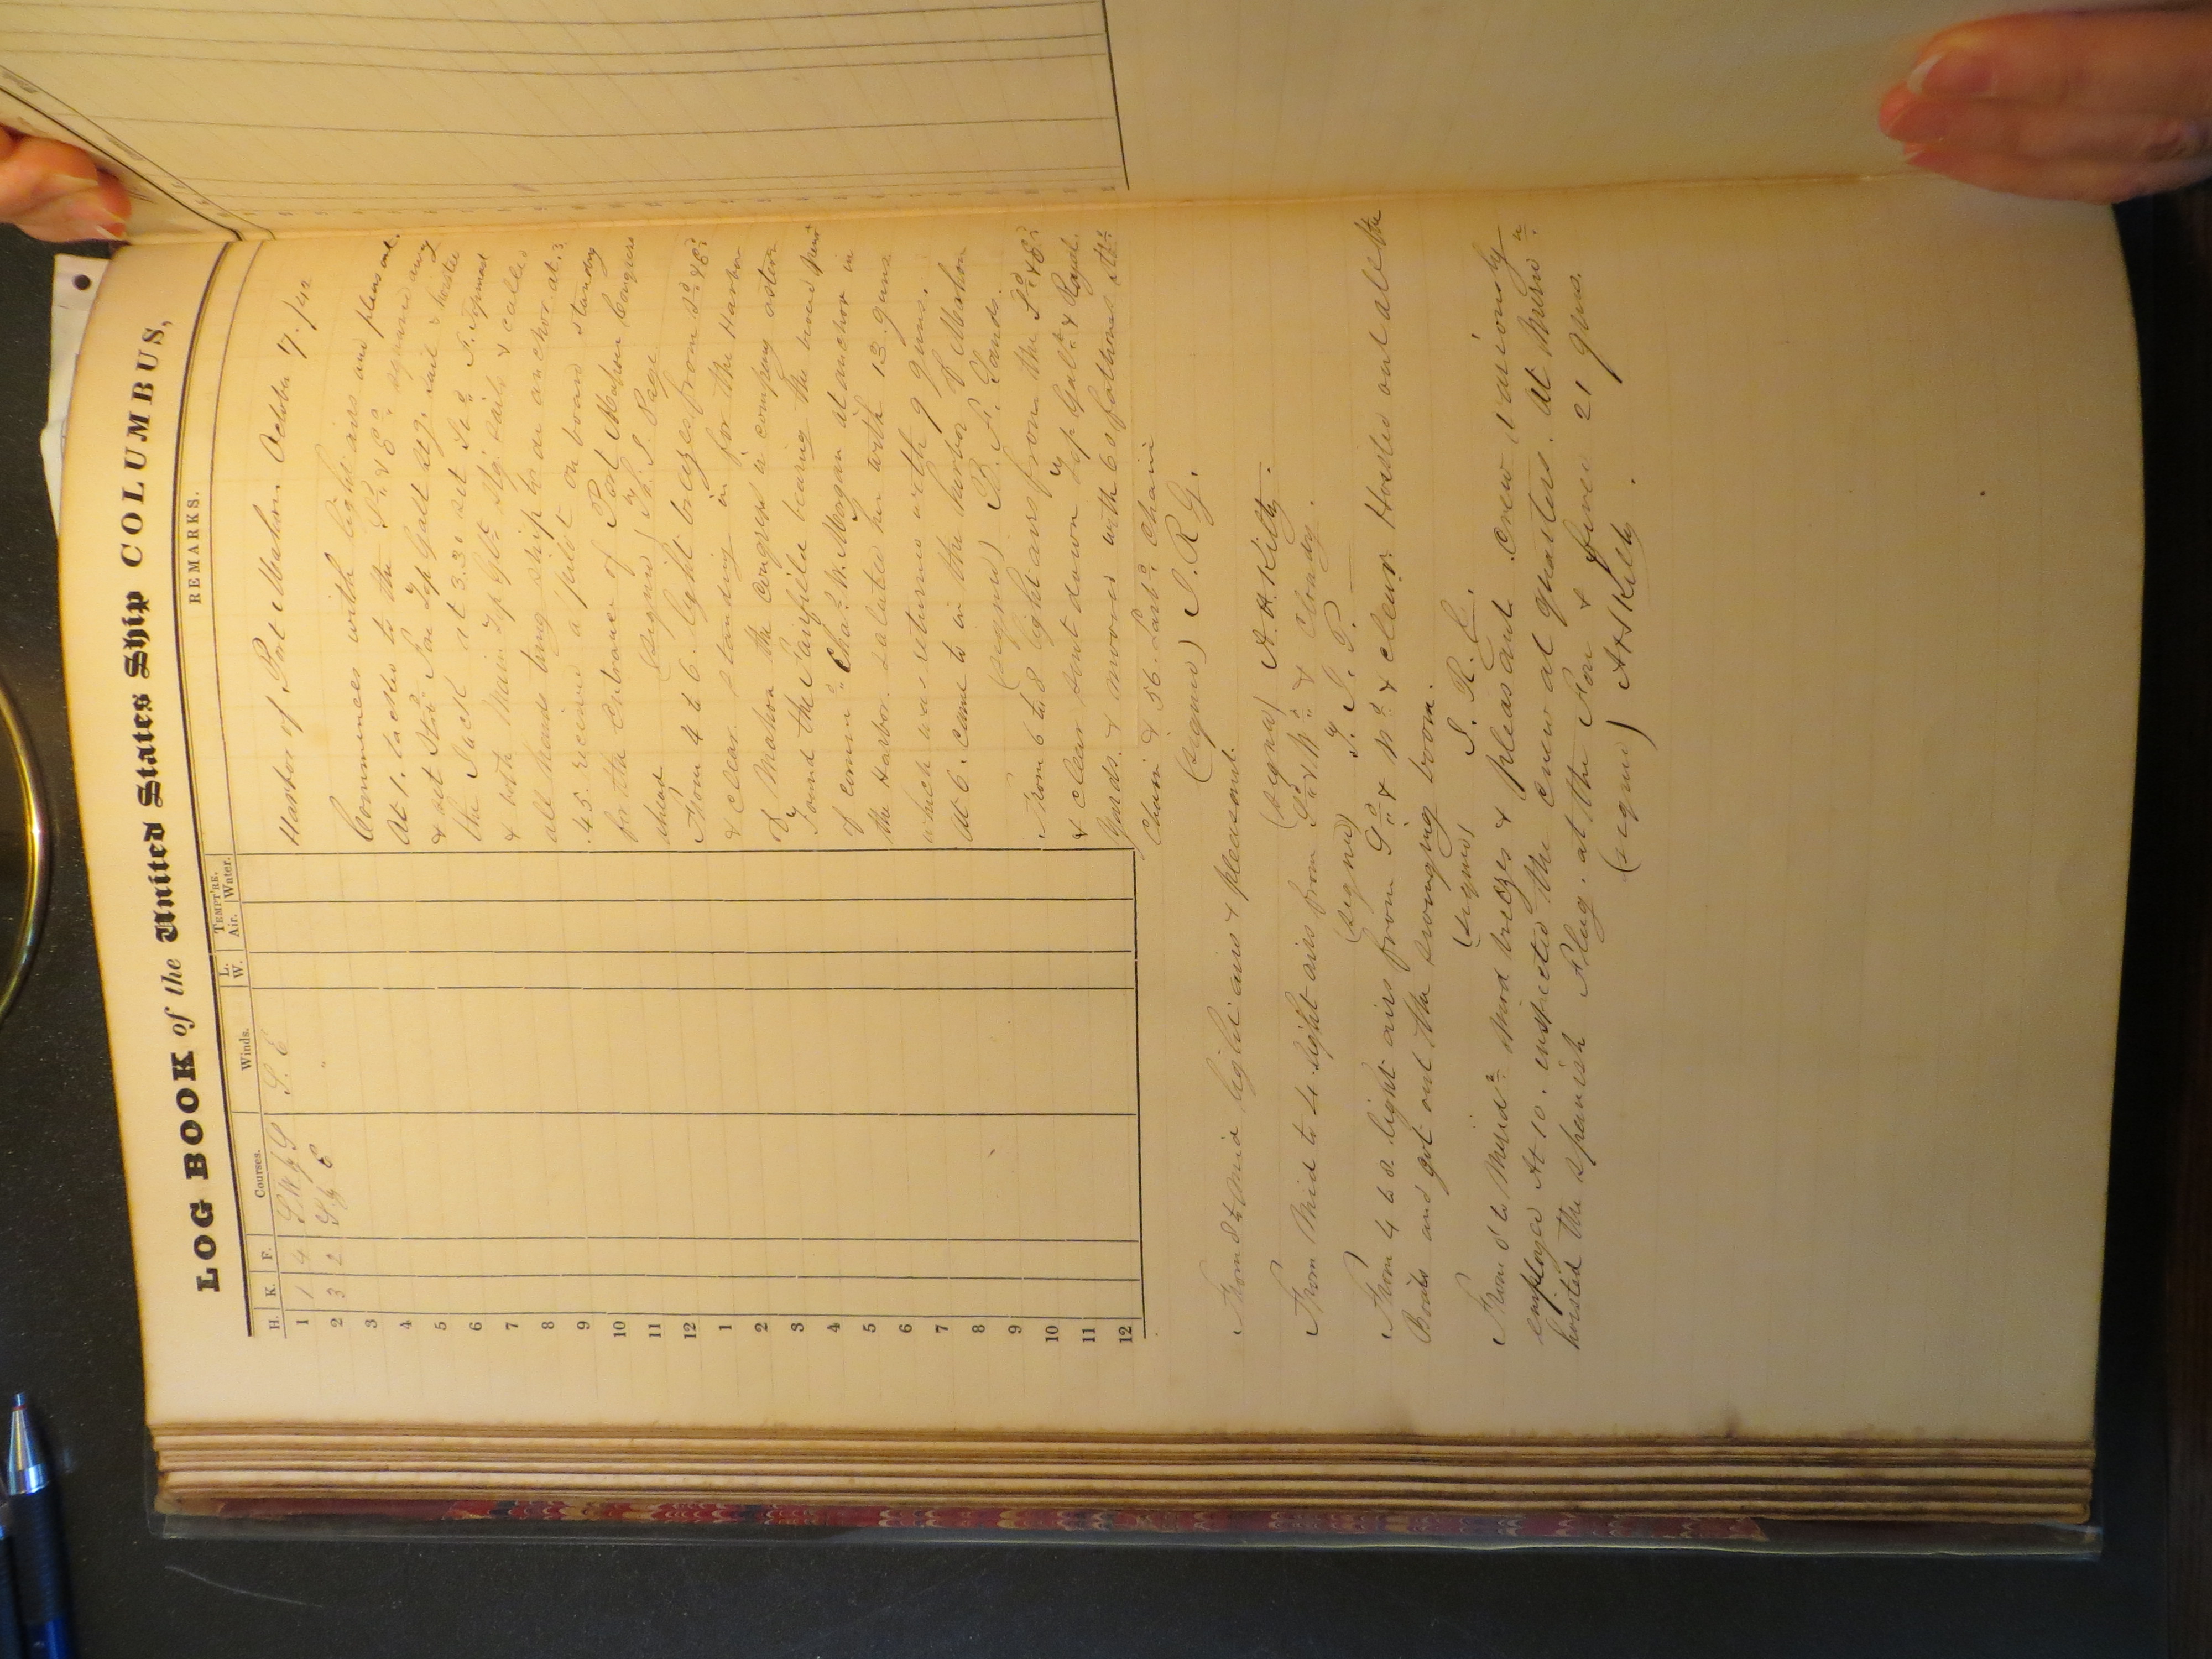 LOG BOOK of the United States Ship COLUMBUS,
H. K. F. Courses. Winds. L. W. TEMPT'RE. Air. Water. REMARKS.
Harbor of Port Mahon October 7. /42
1 1 4 S.W by S S. E
2 3 2 S by E "
3
4
5
6
7
8
9
10
11
12
1
2
3
4
5
6
7
8
9
10
11
12
Commences with light airs and pleasant.
At 1. tacked to the Sd & Ed. squared away
& set Std Fore Top Gall stg. sail & hoisted
the Jack at 3.30 set Std F. Topmast
& both Main Top Glt Stg. sails & called
all hands bring ship to an anchor at 3
.45. received a pilot on board standing
for the Entrance of Port Mahon Congress
ahead. (signed) Th. J. Page
From 4 to 6. light breezes from Sd & Ed
& clear standing in for the Harbor
of Mahon the Congress in company astern
Found the Fairfield bearing the broad
of comre Chas W. Morgan at anchor in
the Harbor. saluted him with 13 guns
which was returned with 9 guns.
At 6. came to in the harbor of Mahon
(signed) B. F. Sands.
From 6 to 8 light airs from the Sd & Ed
& clear sent down Top Galt & Royal
Yards. & moored with 60 fathoms Stbd
Chain & 56. Larbd. Chain
(signed) S. R G.
From 8 to Mid light airs & pleasant.
(signed) A. H. Kilty.
From Mid to 4. light airs from Sd & Wd & Cloudy.
(signed) T. J. P.
From 4 to 8. light airs from Sd & Wd & clear. Hoisted out all the
Boats and got out the swinging boom.
(signed) S. R. G.
From 8 to Merid. Mod breezes & pleasant. Crew variously
employed At 10. inspected the Crew at quarters. At Merid
hoisted the Spanish Flag. at the Fore & fired 21 guns.
(signed) A H Kilty.